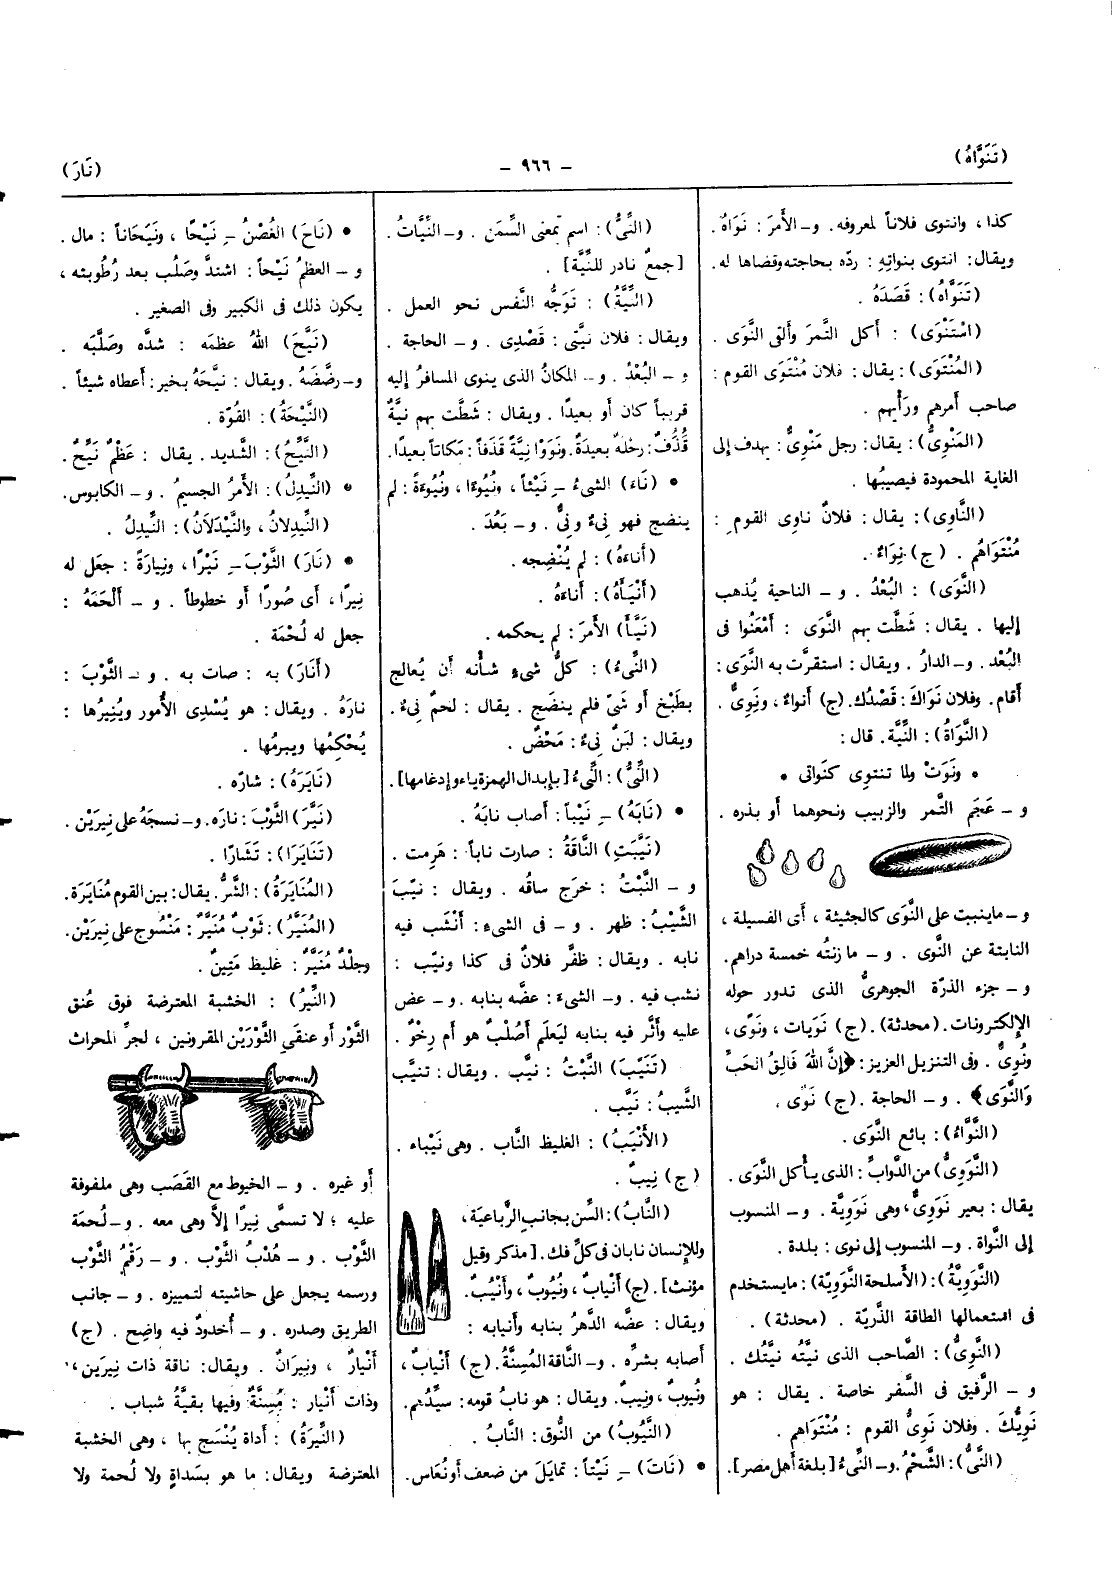 (تَنَوَّاهُ)
– ٩٦٦ –
(نَارَ)
كذا ، وانتوى فلاناً لمعروفه. و– الأمرَ : نَوَاهُ.
ويقال: انتوى بنواتِهِ : ردّه بحاجته وقضاها له.
(تَنَوَّاهُ): قَصَدَهُ .
(اسْتَنْوَى) : أكل التَّمرَ وألقى النَّوَى .
(المُنْتَوَى): يقال: فلان مُنْتَوَى القوم :
صاحب أمرهم ورَأْيهم .
(المَنْوِىُّ): يقال: رجل مَنْوِىٌّ : يهدف إلى
الغاية المحمودة فيصيبُها .
(النَّاوِى): يقال: فلانٌ ناوِى القومِ :
مُنْتَوَاهُم . (ج) نِوَاءٌ.
(النَّوَى) : البُعْدُ . و– الناحية يُذهب
إليها . يقال: شَطَّت بهم النَّوَى : أمْعَنُوا فى
البُعْد. و– الدارُ . ويقال: استقرَّت به النَّوَى :
أقام. وفلان نَوَاكَ: قَصْدُك. (ج) أنواءٌ، ونُوِىٌّ .
(النَّوَاةُ): النِّيَّة. قال:
* ونَوَتْ ولما تنتوِى كنَواتى *
و – عَجَم التَّمر والزبيب ونحوهما أو بذره .
و– ماينبت على النَّوَى كالجثيثة ، أى الفسيلة ،
النابتة عن النَّوى . و– ما زِنتُه خمسة دراهم.
و– جزء الذرّة الجوهرىُّ الذى تدور حوله
الإلكترونات. (محدثة). (ج) نَوَيات ، ونَوًى،
ونُوِىٌّ . وفى التنزيل العزيز: ﴿إنَّ اللهَ فَالِقُ الحَبِّ
وَالنَّوَى﴾ . و– الحاجة . (ج) نَوًى .
(النَّوَّاءُ): بائع النَّوَى.
(النَّوَوِىُّ) من الدَّوابِّ: الذى يأكل النَّوَى.
يقال: بعير نَوَوِىٌّ، وهى نَوَوِيَّة . و– المنسوب
إلى النَّواة. و– المنسوب إلى نوى : بلدة .
(النَّوَوِيَّةُ): (الأسلحة النَّوَوِيَّة): مايستخدم
فى استعمالها الطاقة الذَّريّة . (محدثة) .
(النَّوِىُّ): الصَّاحب الذى نيَّتُه نيَّتُك .
و – الرَّفيق فى السَّفر خاصة . يقال : هو
نَوِيُّكَ . وفلان نَوِىُّ القوم : مُنْتَوَاهم .
(النَّىُّ): الشَّحْمُ. و– النِّىءُ [بلغة أهل مصر].
(النِّىُّ): اسم بمعنى السِّمَن . و– النِّيَّاتُ.
[جمعٌ نادر للنِّيَّة].
(النِّيَّةُ) : تَوَجُّه النَّفس نحو العمل .
ويقال: فلان نيَّتى: قَصْدِى . و– الحاجة .
و – البُعْدُ . و– المكانُ الذى ينوى المسافرُ إليه
قريباً كان أو بعيدًا . ويقال : شَطَّت بهم نيَّةٌ
قُذُفٌ: رحْلة بعيدةٌ. ونَوَوْا نِيَّةً قَذَفاً: مَكاناً بعيدًا.
* (نَاءَ) الشىءُ – نَيْئاً ، ونُيُوءًا ، ونُيُوءَةً : لم
ينضج فهو نِىءٌ ونِىٌّ . و– بَعُدَ .
(أناءَهُ) : لم يُنْضِجه .
(أَنْيَأَهُ) : أناءَهُ .
(نَيَّأَ) الأمرَ : لم يحكمه .
(النِّىءُ) : كلُّ شىءٍ شأنُه أن يُعالج
بطَبْخٍ أو شَىٍّ فلم ينضَج . يقال : لحمٌ نِىءٌ .
ويقال : لبَنٌ نِىءٌ : مَحْضٌ .
(النِّىُّ): النِّىءُ [بإبدال الهمزة ياء وإدغامها].
* (نَابَهُ) – نَيْباً : أصاب نابَهُ .
(نَيَّبَتِ) النَّاقةُ : صارت ناباً : هَرِمت .
و – النَّبْتُ : خرَج ساقُه . ويقال : نيَّبَ
الشَّيْبُ: ظهر . و– فى الشىءِ : أنْشَب فيه
نابه . ويقال: ظفَّر فلانٌ فى كذا ونيَّب :
نشب فيه . و– الشىءَ : عضَّه بنابه . و– عض
عليه وأَثَّر فيه بنابه ليَعلَم أصُلْبٌ هو أم رِخْوٌ .
(تَنَيَّبَ) النَّبْتُ : نيَّب . ويقال : تنيَّب
الشَّيبُ : نَيَّب .
(الأَنْيَبُ) : الغليظ النَّاب . وهى نَيْباء .
(ج) نِيبٌ .
(النَّابُ): السِّن بجانب الرَّباعيَة ،
وللإنسان نابان فى كلِّ فك. [مذكر وقيل
مؤنث]. (ج) أنْيابٌ، ونُيُوبٌ، وأَنْيُبٌ.
ويقال : عضَّه الدَّهرُ بنابه وأنيابه :
أصابه بشرِّه . و– النَّاقة المُسِنَّةُ. (ج) أنْيابٌ،
ونُيوبٌ، ونِيبٌ. ويقال: هو نابُ قومه: سيِّدُهم.
(النَّيُوبُ) من النُّوق : النَّابُ .
* (نَاتَ) – نَيْتاً : تمايَل من ضعف أو نُعَاس.
* (نَاحَ) الغُصْنُ – نَيْحًا ، ونَيَحَاناً : مال .
و – العظمُ نَيْحاً : اشتدَّ وصَلُب بعد رُطُوبته ،
يكون ذلك فى الكبير وفى الصغير .
(نَيَّحَ) اللهُ عظمَه : شدَّه وصَلَّبَه .
و– رضَّضَهُ. ويقال: نيَّحَهُ بخير: أعطاه شيئاً.
(النَّيْحَةُ): القُوّة .
(النَّيِّحُ): الشَّديد . يقال : عَظْمٌ نَيِّحٌ.
* (النِّيدِلُ): الأمْرُ الجسيمُ . و– الكابوس.
(النِّيدِلانُ ، والنَّيْدَلَانُ): النِّيدِلُ .
* (نَارَ) الثَّوْبَ – نَيْرًا ، ونِيارَةً : جعل له
نِيرًا ، أى صُورًا أو خطوطاً . و– ألْحَمَهُ :
جعل له لُحْمَة .
(أَنَارَ) به : صات به . و– الثَّوْبَ :
نارَهُ . ويقال: هو يُسْدِى الأُمور ويُنِيرُها :
يُحْكِمُها ويبرِمُها .
(نَايَرَهُ) : شارّه .
(نَيَّرَ) الثَّوْبَ : نارَه. و– نسجَهُ على نِيرَيْن .
(تَنَايَرَا): تَشَارّا .
(المُنَايَرَةُ): الشَّرُّ. يقال: بين القوم مُنَايَرَة.
(المُنَيَّرُ): ثَوْبٌ مُنَيَّرٌ : مَنْسُوج على نِيرَيْن.
وجِلْدٌ مُنَيَّرٌ : غليظ مَتِينٌ .
(النِّيرُ) : الخشبة المعترضة فوق عُنق
الثَّوْر أو عنقَىِ الثَّوْرَيْن المقرونين ، لجرِّ المحراث
أو غيره . و– الخيوط مع القَصَب وهى ملفوفة
عليه ؛ لا تسمَّى نِيرًا إلاَّ وهى معه . و– لُحمَة
الثَّوب . و– هُدْبُ الثَّوْب . و– رَقْمُ الثَّوْب
ورسمه يجعل على حاشيته لتمييزه . و– جانب
الطريق وصدره . و– أُخدودٌ فيه واضِح . (ج)
أنْيارٌ ، ونِيرَانٌ . ويقال: ناقة ذات نِيرَين ،
وذات أنْيار : مُسِنَّةٌ وفيها بقيَّةُ شباب .
(النِّيرَةُ) : أداة يُنْسَج بها ، وهى الخشبة
المعترضة ويقال: ما هو بسَداةٍ ولا لُحمة ولا